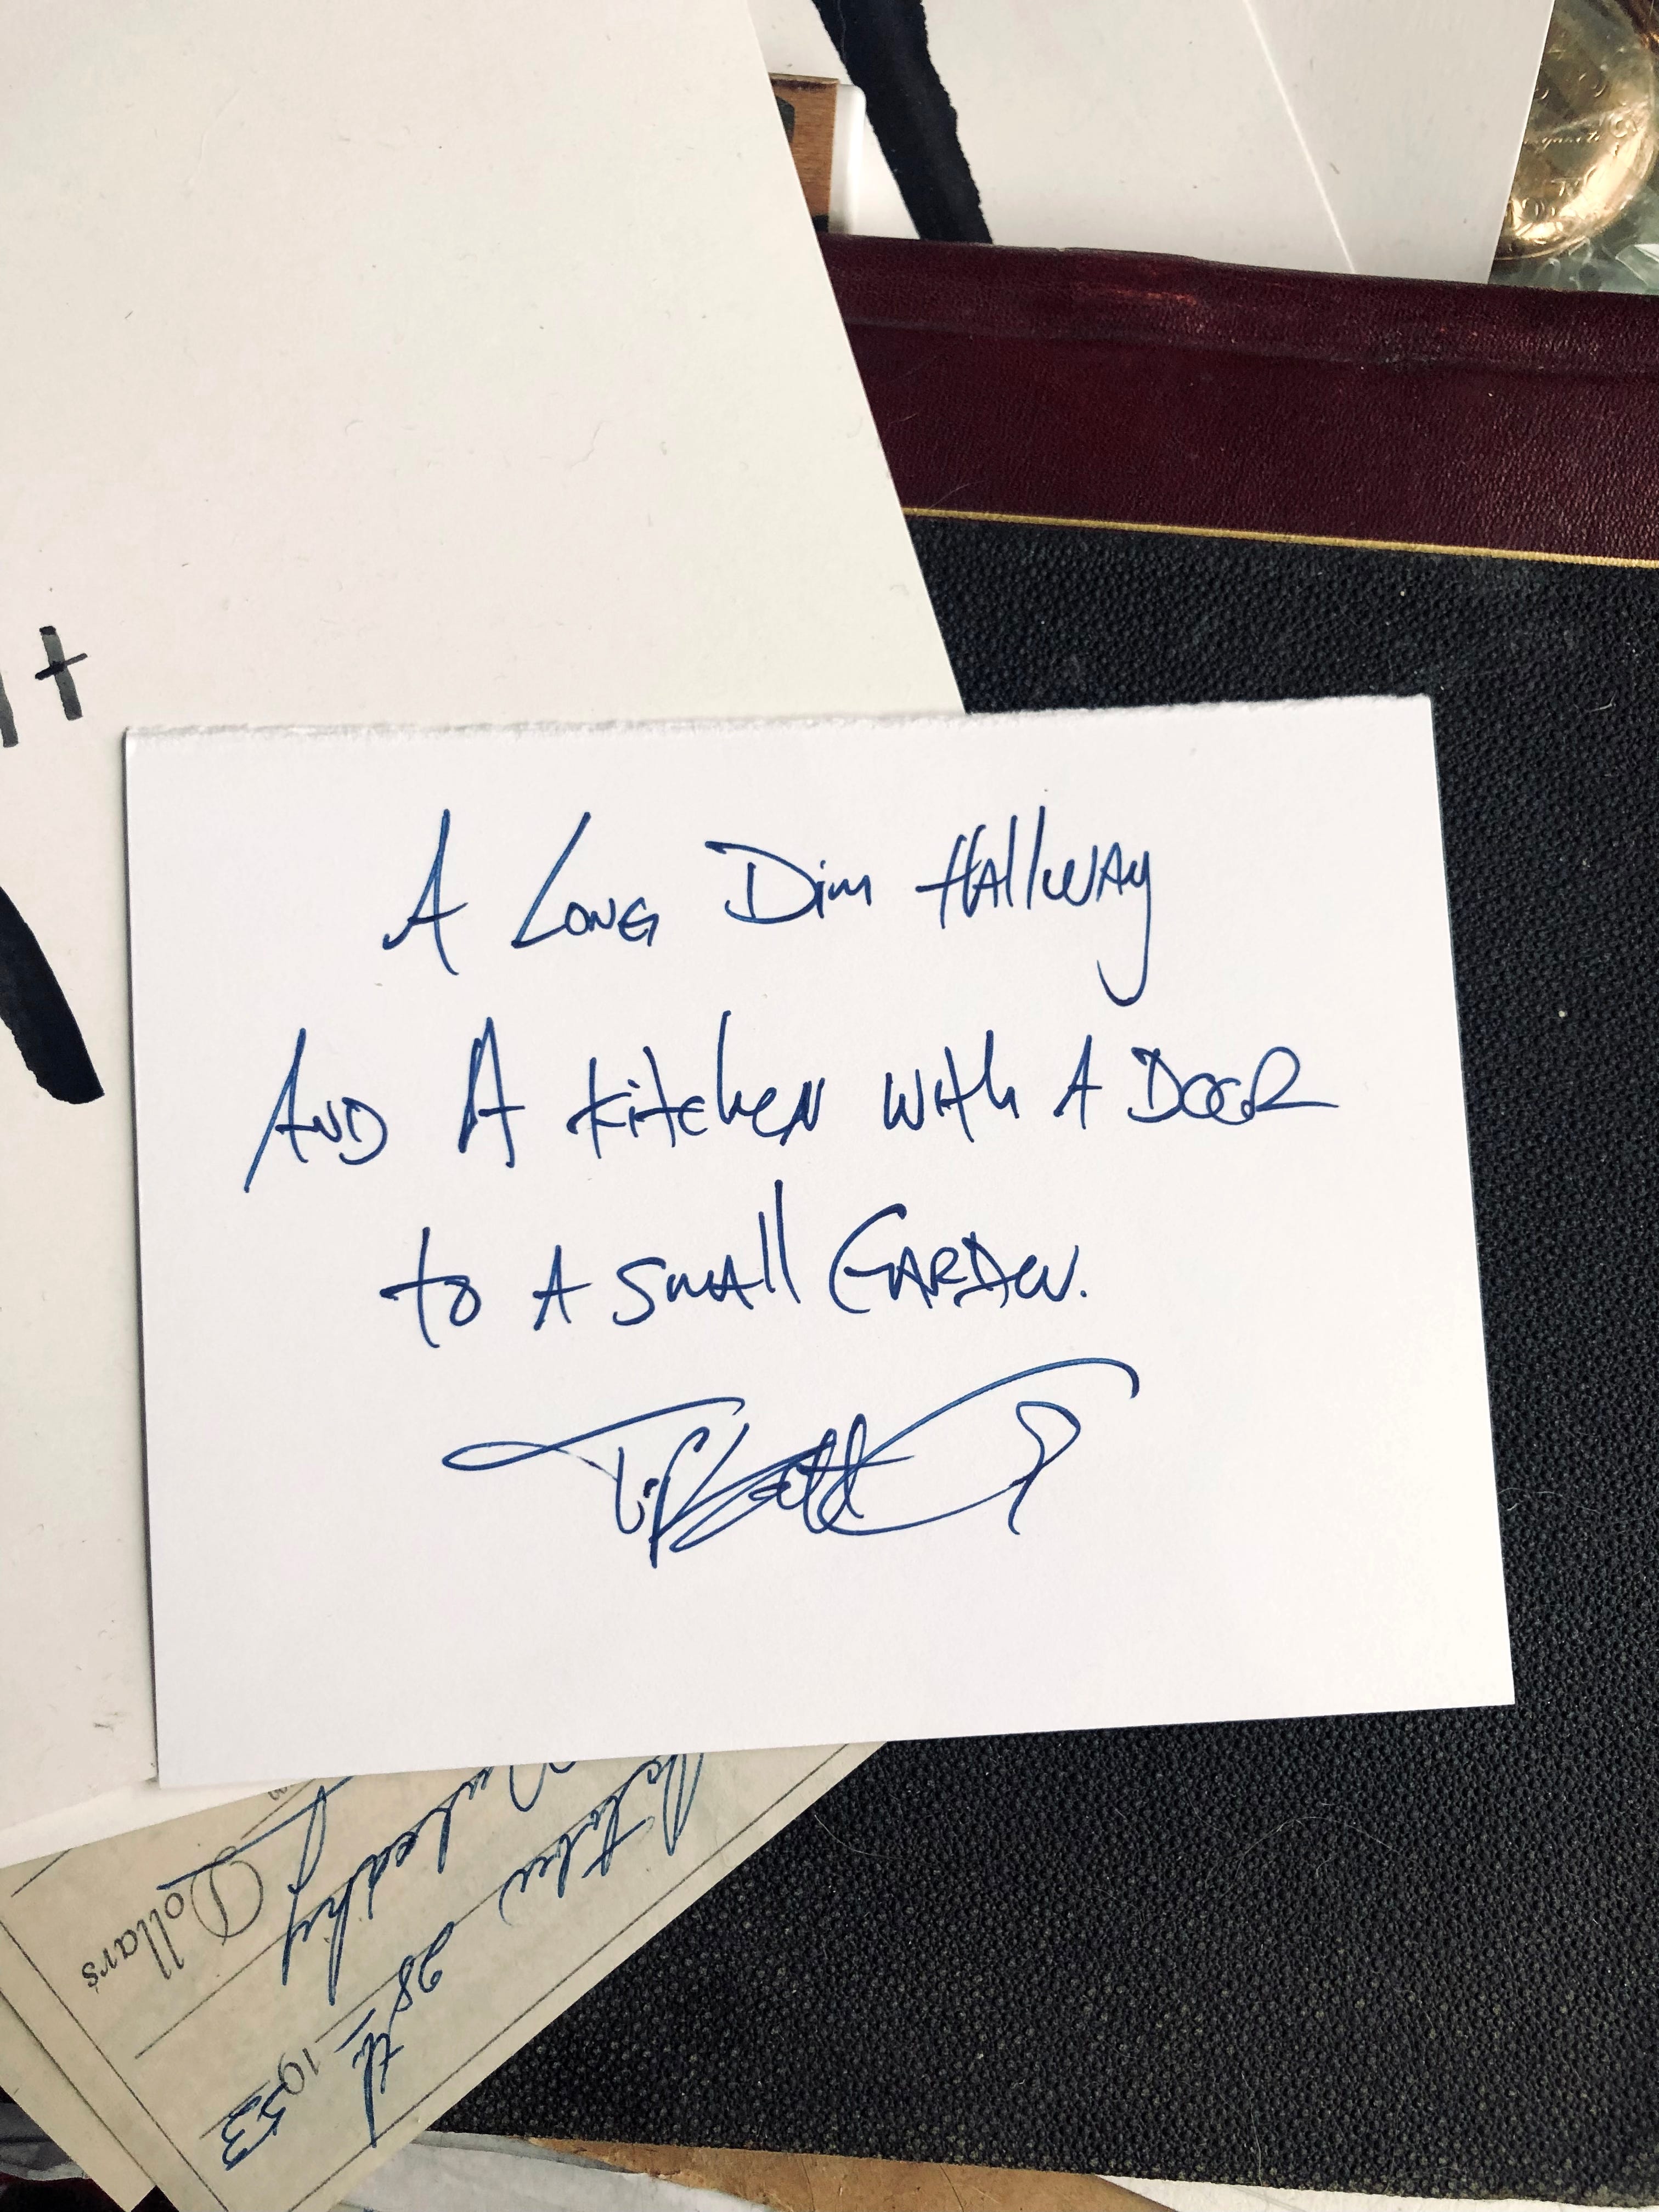 A Long Dim Hallway
And A Kitchen with A Door
to A small Garden.
Dollars
28th 1953